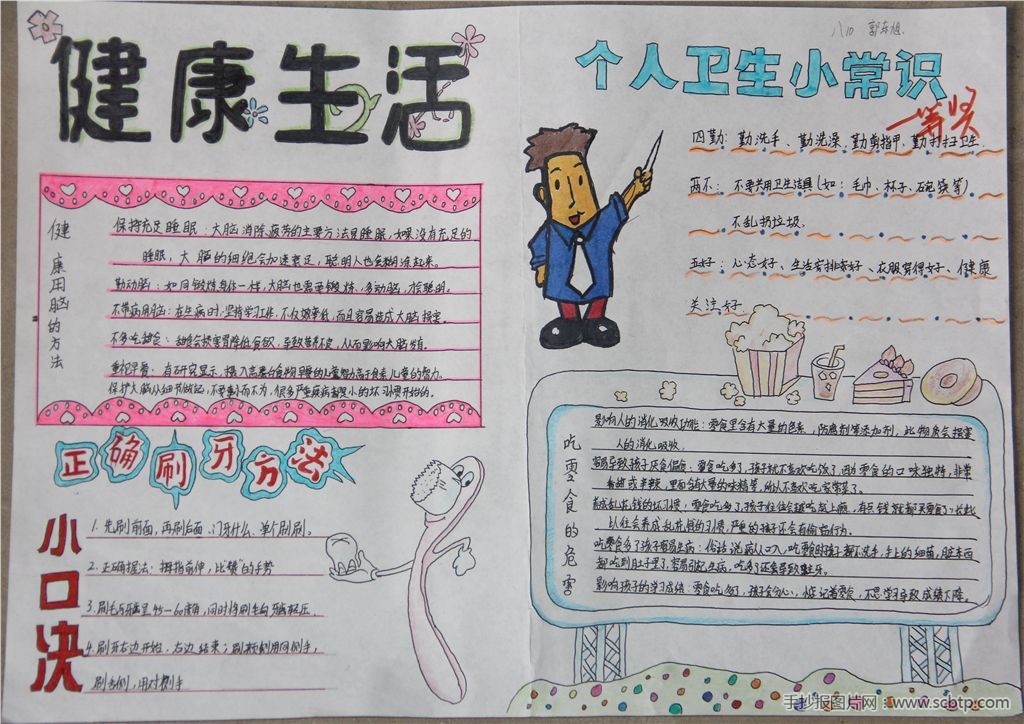 健康生活
健康用脑的方法
保持充足睡眠：大脑消除疲劳的主要方法是睡眠，如果没有充足的
睡眠，大脑的细胞会加速衰足，聪明人也会糊涂起来。
勤动脑：如同锻炼身体一样，大脑也需要锻炼，多动脑，才能聪明。
不带病用脑：在生病时，坚持学习工作，不仅效率低，而且容易造成大脑损害。
不多吃甜食：甜食会损害胃降低食欲，导致营养不良，从而影响大脑发育。
重视早餐：有研究显示，摄入高蛋白食物早餐的儿童智力高于食素儿童的智力。
保护大脑从细节做起，不要重小而不为，很多严重疾病都是小的坏习惯开始的。
正确刷牙方法
小口决
1.先刷前面，再刷后面，门牙什么，单个刷刷。
2.正确握法：拇指前伸，比赞"的手势
3.刷毛与牙齿呈45-60度角，同时将刷毛向牙齿轻压
4.刷牙右边开始，右边结束；刷颊侧用同侧手，
刷舌侧，用对侧手
八10 郭东旭
个人卫生小常识
一等奖
四勤：勤洗手、勤洗澡、勤剪指甲、勤打扫卫生.
两不：不要共用卫生洁具(如：毛巾、杯子、碗筷等)
不乱扔垃圾.
五好：心态好、生活安排好、衣服穿得好、健康
关注好
吃零食的危害
影响人的消化吸收功能：零食里含有大量的色素，防腐剂等添加剂，此物质会损害
人的消化吸收.
容易导致孩子厌食偏食：零食吃多了，孩子就不喜欢吃饭了.因为零食的口味独特，非常
香甜或辛辣，里面含有大量的味精等，所以不喜欢吃家常菜了.
养成乱花钱的坏习惯：零食吃多了，孩子往往会越吃越上瘾，有民钱就都买零食了.长此
以往会养成乱花钱的习惯，严重的孩子还会有偷窃行为.
吃零食多了孩子容易生病：俗话说病从口入，吃零食时孩子都不洗手，手上的细菌，脏东西
都吃到肚子里了，容易引起生病，吃多了还会导致蛀牙.
影响孩子的学习成绩：零食吃多了，孩子会分心，惦记着零食，不思学习导致成绩下降。
手抄报图片网：www.scbtp.com